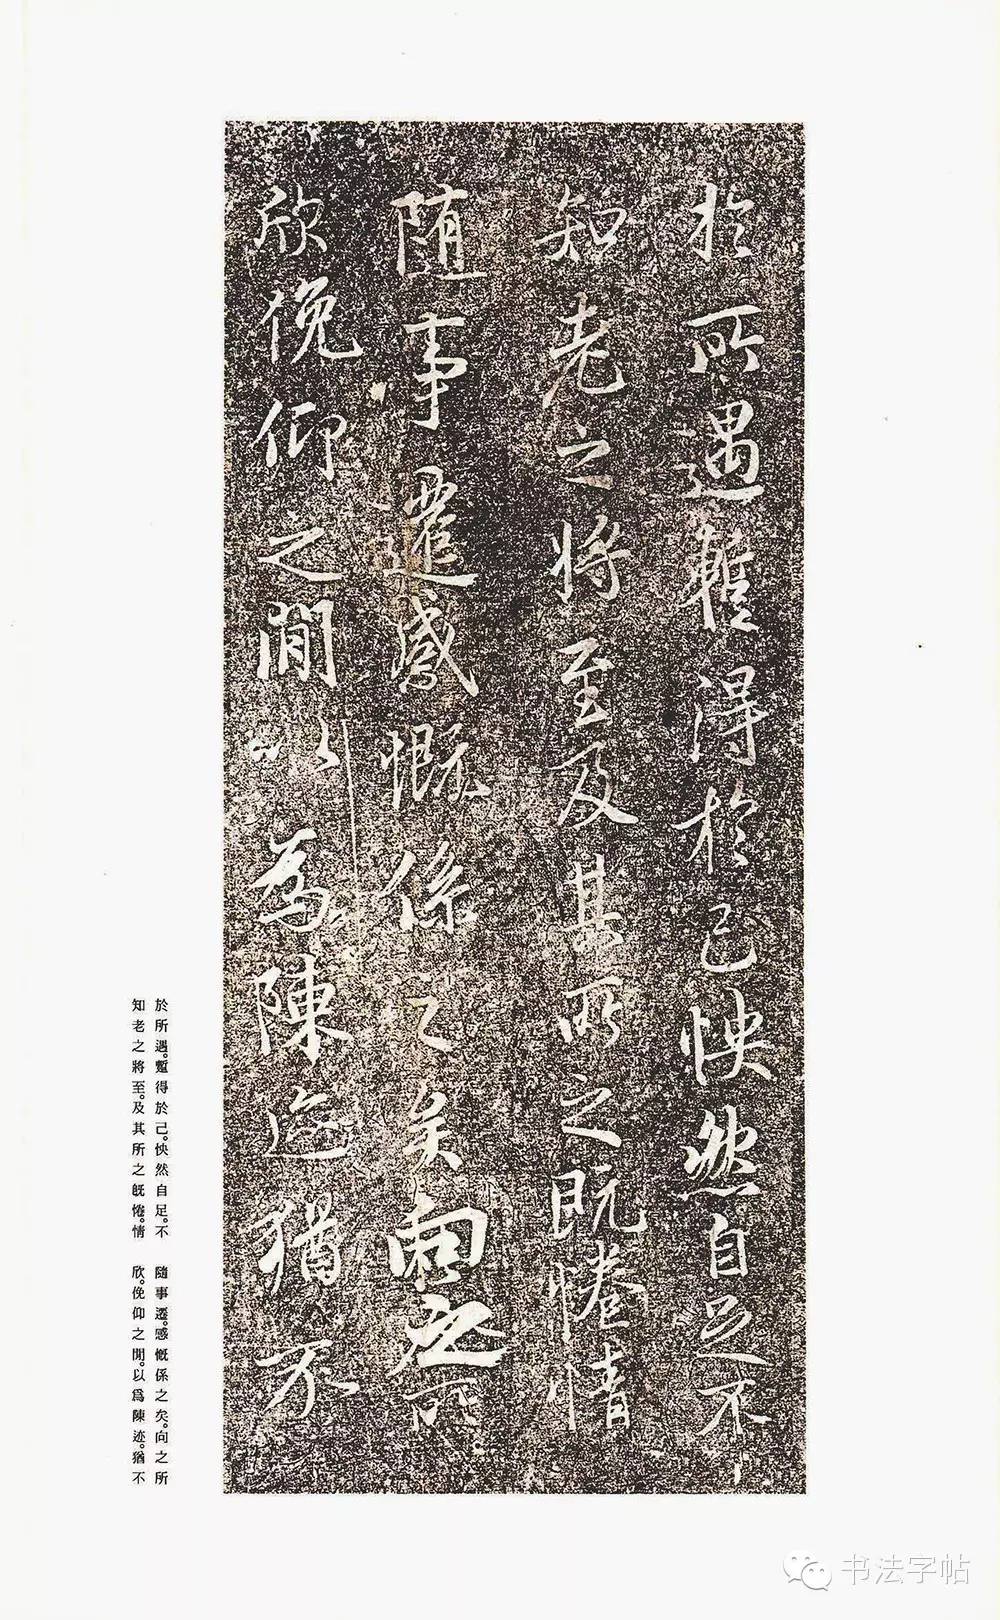 於所遇蹔得於己怏然自足不
知老之將至及其所之既惓情
随事遷感慨係之矣向之所
欣俛仰之閒以為陳迹猶不
於所遇。蹔得於己。怏然自足。不
知老之將至。及其所之既惓。情
隨事遷。感慨係之矣。向之所
欣。俛仰之閒。以爲陳迹。猶不
书法字帖